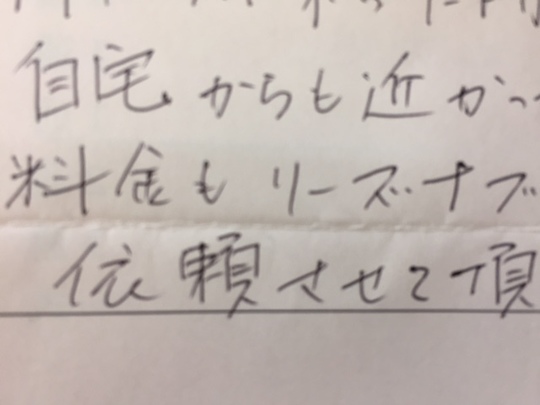 自宅からも近かっ
料金もリーズナブ
依頼させて頂